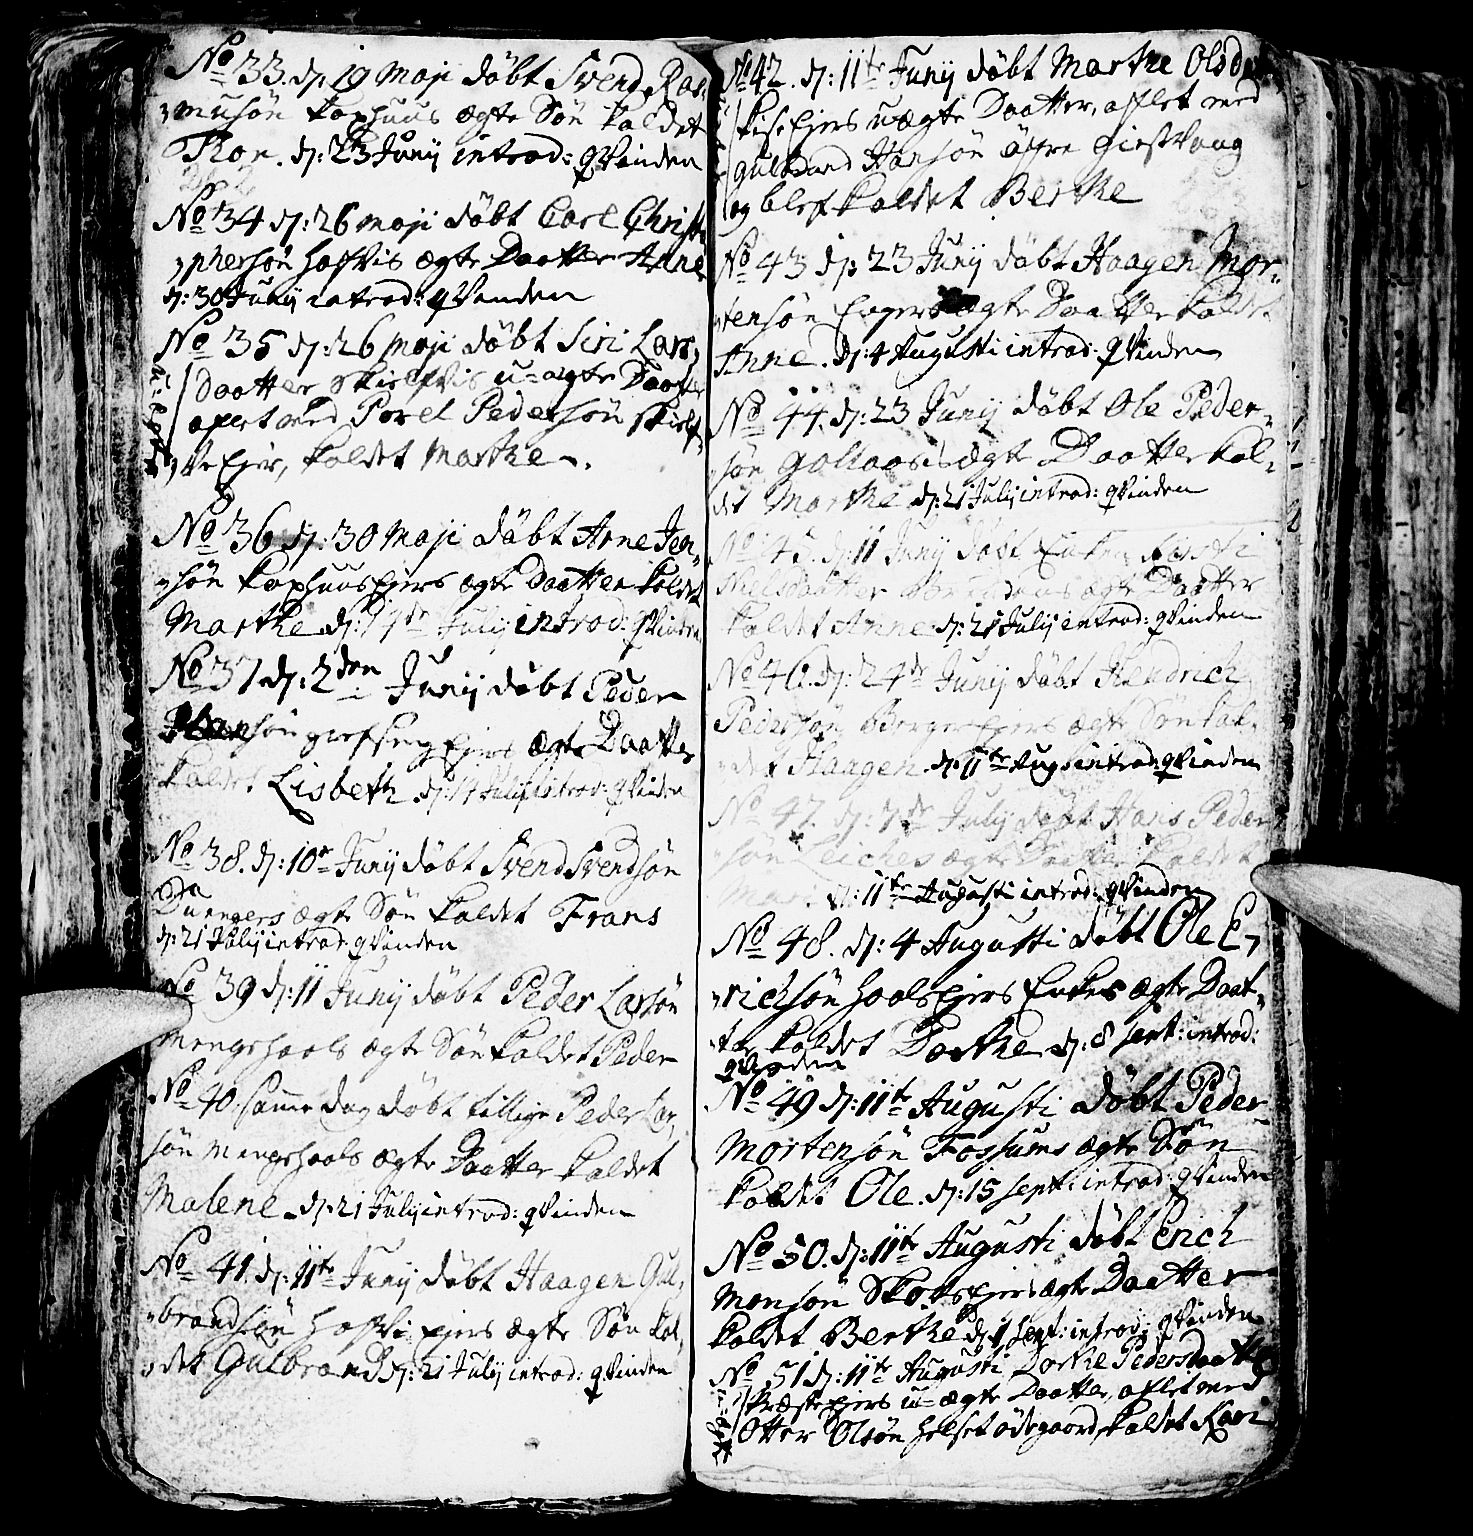 No 33. d: 19 Maji döbt Svend Ras,,
,,musön Kophuus ægte Sön kaldet
Thor. d: 23 Junij introd: qvinden
No 34 d: 26 Maji döbt Carl Christo
,,phersön Hafvis ægte Daatter Anne
d: 30 Junij introd: qvinden
No 35 d: 26 Maji döbt Siri Lars,,
daatter u-ægte Daatter
aflet med Povel Pedersön
Ejer, kaldet Marthe.
No 36 d: 30 Maji döbt Arne Jen,,
,,sön Kophuusejers ægte Daatter kaldet
Marthe d: Julij introd: qvinden
No 37 d: 2den Junij döbt Peder
Hansön Grefsingejers ægte Daatter
kaldet Lisbeth d: 14 Julij introd: qvinden
No 38. d: 10de Junij döbt Svend Svendsön
ægte Sön kaldet Frans
d: 21 Julij introd: qvinden
No 39 d: 11 Junij döbt Peder Larsön
Mengshaals ægte Sön kaldet Peder
No 40. samme dag döbt tillige Peder Lar,,
sön Mengshaals ægte Daatter kaldet
Malene d: 21 Julij introd: qvinden
No 41. d: 11te Junij döbt Haagen Gul,,
,,brandsön Hafviejers ægte Sön kal,,
,,det Gulbrand d: 21 Julij introd: qvinden
No 42. d: 11te Junij döbt Marthe Olsd
ejers uægte Daatter, aflet med
Gulbrand Hansön öfre Giestvang
og blef kaldet Berthe
No 43 d: 23 Junij döbt Haagen Mor,,
,,tensön Ejers ægte Daatter kaldet
Anne. d: 4 Augusti introd: qvinden
No 44. d: 23 Junij döbt Ole Peder,,
,,sön Gallaas ægte Daatter kal,,
det Marthe d: 21 Julij introd: qvinden
No 45. d: 11 Junij döbt Enken Kirsti
Nielsdaatter ægte Daatter
kaldet Anne d: 21 Julij introd: qvinden
No 46. d: 24de Junij döbt Hendrich
Pedersön Bergerejers ægte Sön kal,,
,,det Haagen d: 11te Aug: introd: qvinden
No 47. d: 7de Julij döbt Hans Peder
,,sön Leiches ægte Daatter kaldet
Mari d: 11te Augusti introd: qvinden
No 48. d: 4 Augusti döbt Ole E,,
,,richsön Haalsejers Enkes ægte Daat,,
,,ter kaldet Dorthe d: 8 Sept: introd:
qvinden
No 49 d: 11te Augusti döbt Peder
Mortensön Fossums ægte Sön
kaldet Ole. d: 15 Sept: introd: qvinden
No 50. d: 11te Augusti döbt Erich
Monsön Skotsejers ægte Daatter
kaldet Berthe d: 1 Sept: introd: qvinden
No 51 d: 11te Augusti Dorthe Pedersdaatter
Præsteejers u-ægte Daatter, aflet med
Otter Olsön Helset ödegaard, kaldet Kari